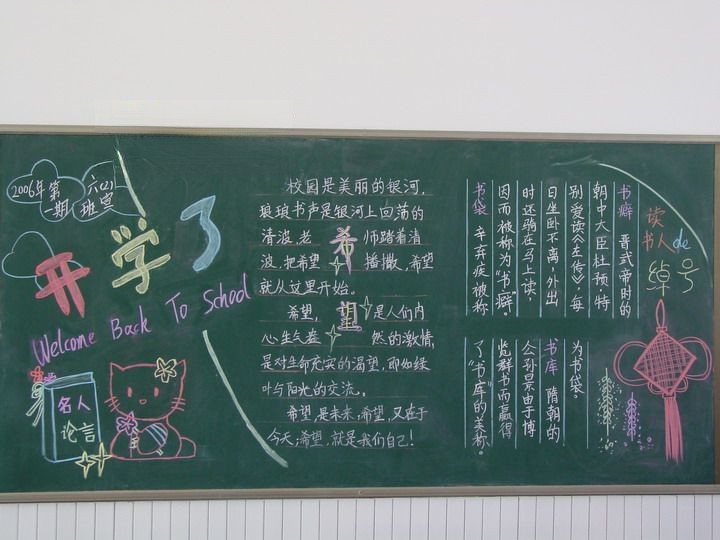 2006年第
一期
六(2)
班宣
开学了
Welcome Back To School
名人
论言
校园是美丽的银河,
琅琅书声是银河上回荡的
清波,老师踏着清
波,把希望播撒,希望
就从这里开始。
希望
希望,是人们内
心生气盎然的激情,
是对生命充实的渴望,即如绿
叶与阳光的交流。
希望,是未来,希望,又在于
今天;希望,就是我们自己!
读
书人de
绰号
书癖 晋武帝时的
朝中大臣杜预,特
别爱读《左传》,每
日坐卧不离,外出
时还骑在马上读,
因而被称为“书癖”。
书袋 辛弃疾被称
为书袋。
书库 隋朝的
公孙景由于博
览群书而赢得
了“书库”的美称。